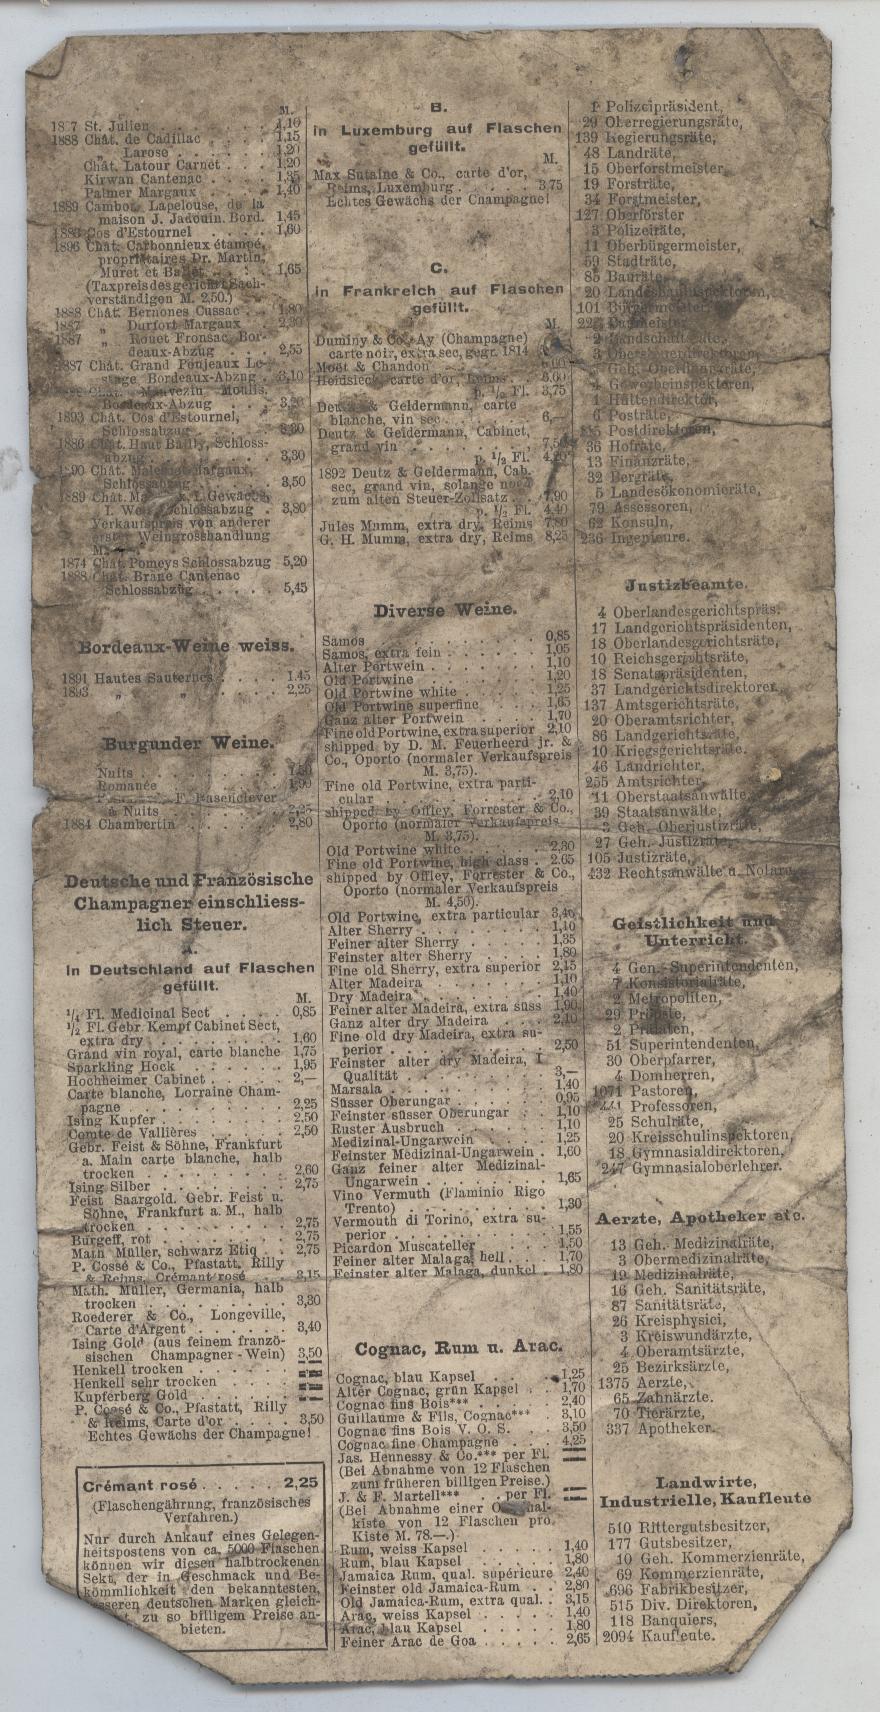 M.
St. Julien . . . . 1,10
1888 Chât. de Cadillac . . . 1,15
„ Larose . . . . 1,20
Chât. Latour Carnet . . . 1,20
Kirwan Cantenac . . . 1,35
Palmer Margaux . . . 1,40
1889 Cambor. Lapelouse, de la
maison J. Jadouin. Bord. 1,45
Cos d'Estournel . . . . 1,60
1896 Chât. Carbonnieux étampé,
propriétaires Dr. Martin,
Muret et . . . 1,65
(Taxpreis des gericht. Sach-
verständigen M. 2,50.)
1888 Chât. Bernones Cussac . . 1,80
1887 „ Durfort Margaux .
1887 „ Rouet Fronsac, Bor-
deaux-Abzug . . . 2,55
1887 Chât. Grand Ponjeaux Le-
stage Bordeaux-Abzug . 3,10
Mauvezin Moulis,
Bordeaux-Abzug . . .
1893 Chât. Cos d'Estournel,
Schlossabzug . . .
1886 Chât. Haut Bailly, Schloss-
abzug . . . 3,30
1890 Chât. Margaux,
Schlossabzug . . . 3,50
1889 Chât. I. Gewächs,
Schlossabzug . 3,80
Verkaufspreis von anderer
erster Weingrosshandlung
1874 Chât. Pomeys Schlossabzug 5,20
1888 Chât. Brane Cantenac
Schlossabzug . . . . 5,45
Bordeaux-Weine weiss.
1891 Hautes Sauternes . . . . 1,45
1893 „ „ . . . . 2,25
Burgunder Weine.
Nuits . . . .
Romanée . . . .
F. Hasenclever
à Nuits . . . . 2,25
1884 Chambertin . . . . 2,80
Deutsche und Französische
Champagner einschliess-
lich Steuer.
A.
in Deutschland auf Flaschen
gefüllt.
M.
¹/₄ Fl. Medicinal Sect . . . . 0,85
¹/₂ Fl. Gebr. Kempf Cabinet Sect,
extra dry . . . . 1,60
Grand vin royal, carte blanche 1,75
Sparkling Hock . . . . 1,95
Hochheimer Cabinet . . . . 2,—
Carte blanche, Lorraine Cham-
pagne . . . . 2,25
Ising Kupfer . . . . 2,50
Comte de Vallières . . . . 2,50
Gebr. Feist & Söhne, Frankfurt
a. Main carte blanche, halb
trocken . . . . 2,60
Ising Silber . . . . 2,75
Feist Saargold. Gebr. Feist u.
Söhne, Frankfurt a. M., halb
trocken . . . . 2,75
Burgeff, rot . . . . 2,75
Math. Müller, schwarz Etiq . . 2,75
P. Cossé & Co., Pfastatt, Rilly
& Reims, Crémant rosé . . 3,15
Math. Müller, Germania, halb
trocken . . . . 3,30
Roederer & Co., Longeville,
Carte d'Argent . . . . 3,40
Ising Gold (aus feinem franzö-
sischen Champagner-Wein) 3,50
Henkell trocken . . . .
Henkell sehr trocken . . . .
Kupferberg Gold . . . .
P. Cossé & Co., Pfastatt, Rilly
& Reims, Carte d'or . . . . 3,50
Echtes Gewächs der Champagne!
Crémant rosé . . . . 2,25
(Flaschengährung, französisches
Verfahren.)
Nur durch Ankauf eines Gelegen-
heitspostens von ca. 5000 Flaschen
können wir diesen halbtrockenen
Sekt, der in Geschmack und Be-
kömmlichkeit den bekanntesten,
besseren deutschen Marken gleich-
zu so billigem Preise an-
bieten.
B.
in Luxemburg auf Flaschen
gefüllt.
M.
Max Sutaine & Co., carte d'or,
Reims, Luxemburg . . . . 3,75
Echtes Gewächs der Champagne!
C.
in Frankreich auf Flaschen
gefüllt.
M.
Duminy & Co., Ay (Champagne)
carte noir, extra sec, gegr. 1814
Moët & Chandon
Heidsieck, carte d'or, Reims .
p. ¹/₂ Fl. 3,75
Deutz & Geldermann, carte
blanche, vin sec . . . . 6,—
Deutz & Geldermann, Cabinet,
grand vin . . . . 7,50
p. ¹/₂ Fl. 4,20
1892 Deutz & Geldermann, Cab.
sec, grand vin, solange noch
zum alten Steuer-Zollsatz . . 7,90
p. ¹/₂ Fl. 4,40
Jules Mumm, extra dry, Reims 7,80
G. H. Mumm, extra dry, Reims 8,25
Diverse Weine.
Samos . . . . 0,85
Samos, extra fein . . . . 1,05
Alter Portwein . . . . 1,10
Old Portwine . . . . 1,20
Old Portwine white . . . . 1,25
Old Portwine superfine . . . . 1,65
Ganz alter Portwein . . . . 1,70
Fine old Portwine, extra superior 2,10
shipped by D. M. Feuerheerd jr. &
Co., Oporto (normaler Verkaufspreis
M. 3,75).
Fine old Portwine, extra parti-
cular . . . . 2,10
shipped by Offley, Forrester & Co.,
Oporto (normaler Verkaufspreis
M. 3,75).
Old Portwine white . . . . 2,30
Fine old Portwine, high class . 2,65
shipped by Offley, Forrester & Co.,
Oporto (normaler Verkaufspreis
M. 4,50).
Old Portwine, extra particular 3,40
Alter Sherry . . . . 1,10
Feiner alter Sherry . . . . 1,35
Feinster alter Sherry . . . . 1,80
Fine old Sherry, extra superior 2,15
Alter Madeira . . . . 1,10
Dry Madeira . . . . 1,40
Feiner alter Madeira, extra süss 1,90
Ganz alter dry Madeira . . . . 2,10
Fine old dry Madeira, extra su-
perior . . . . 2,50
Feinster alter dry Madeira, I
Qualität . . . . 3,—
Marsala . . . . 1,40
Süsser Oberungar . . . . 0,95
Feinster süsser Oberungar . . 1,10
Ruster Ausbruch . . . . 1,10
Medizinal-Ungarwein . . . . 1,25
Feinster Medizinal-Ungarwein . 1,60
Ganz feiner alter Medizinal-
Ungarwein . . . . 1,65
Vino Vermuth (Flaminio Rigo
Trento) . . . . 1,30
Vermouth di Torino, extra su-
perior . . . . 1,55
Picardon Muscateller . . . . 1,50
Feiner alter Malaga, hell . . . 1,70
Feinster alter Malaga, dunkel . 1,80
Cognac, Rum u. Arac.
Cognac, blau Kapsel . . . . 1,25
Alter Cognac, grün Kapsel . . 1,70
Cognac fins Bois*** . . . . 2,40
Guillaume & Fils, Cognac*** . 3,10
Cognac fins Bois V. O. S. . . 3,50
Cognac fine Champagne . . . 4,25
Jas. Hennessy & Co.*** per Fl.
(Bei Abnahme von 12 Flaschen
zum früheren billigen Preise.)
J. & F. Martell*** . . per Fl.
(Bei Abnahme einer
kiste von 12 Flaschen pro
Kiste M. 78.—.)
Rum, weiss Kapsel . . . . 1,40
Rum, blau Kapsel . . . . 1,80
Jamaica Rum, qual. supérieure 2,40
Feinster old Jamaica-Rum . . 2,80
Old Jamaica-Rum, extra qual. . 3,15
Arac, weiss Kapsel . . . . 1,40
Arac, blau Kapsel . . . . 1,80
Feiner Arac de Goa . . . . 2,65
1 Polizeipräsident,
29 Oberregierungsräte,
139 Regierungsräte,
48 Landräte,
15 Oberforstmeister,
19 Forsträte,
34 Forstmeister,
127 Oberförster
3 Polizeiräte,
11 Oberbürgermeister,
59 Stadträte,
85 Bauräte,
20 Landesbauinspektoren,
101 Bürgermeister,
Baumeister,
2 Landschafträte,
3 Obersteuerdirektoren,
Geh. Oberbergräte,
4 Gewerbeinspektoren,
1 Hüttendirektor,
6 Posträte,
Postdirektoren,
36 Hofräte,
13 Finanzräte,
32 Bergräte,
5 Landesökonomieräte,
79 Assessoren,
62 Konsuln,
236 Ingenieure.
Justizbeamte.
4 Oberlandesgerichtspräs.
17 Landgerichtspräsidenten,
18 Oberlandesgerichtsräte,
10 Reichsgerichtsräte,
18 Senatspräsidenten,
37 Landgerichtsdirektoren,
137 Amtsgerichtsräte,
20 Oberamtsrichter,
86 Landgerichtsräte,
10 Kriegsgerichtsräte.
46 Landrichter,
255 Amtsrichter,
11 Oberstaatsanwälte,
39 Staatsanwälte,
3 Geh. Oberjustizräte,
27 Geh. Justizräte,
105 Justizräte,
432 Rechtsanwälte u. Notare.
Geistlichkeit und
Unterricht.
4 Gen.-Superintendenten,
7 Konsistorialräte,
2 Metropoliten,
29 Pröpste,
2 Prälaten,
51 Superintendenten,
30 Oberpfarrer,
4 Domherren,
1071 Pastoren,
441 Professoren,
25 Schulräte,
20 Kreisschulinspektoren,
18 Gymnasialdirektoren,
247 Gymnasialoberlehrer.
Aerzte, Apotheker etc.
13 Geh. Medizinalräte,
3 Obermedizinalräte,
19 Medizinalräte,
16 Geh. Sanitätsräte,
87 Sanitätsräte,
26 Kreisphysici,
3 Kreiswundärzte,
4 Oberamtsärzte,
25 Bezirksärzte,
1375 Aerzte,
65 Zahnärzte.
70 Tierärzte,
337 Apotheker.
Landwirte,
Industrielle, Kaufleute
510 Rittergutsbesitzer,
177 Gutsbesitzer,
10 Geh. Kommerzienräte,
69 Kommerzienräte,
696 Fabrikbesitzer,
515 Div. Direktoren,
118 Banquiers,
2094 Kaufleute.